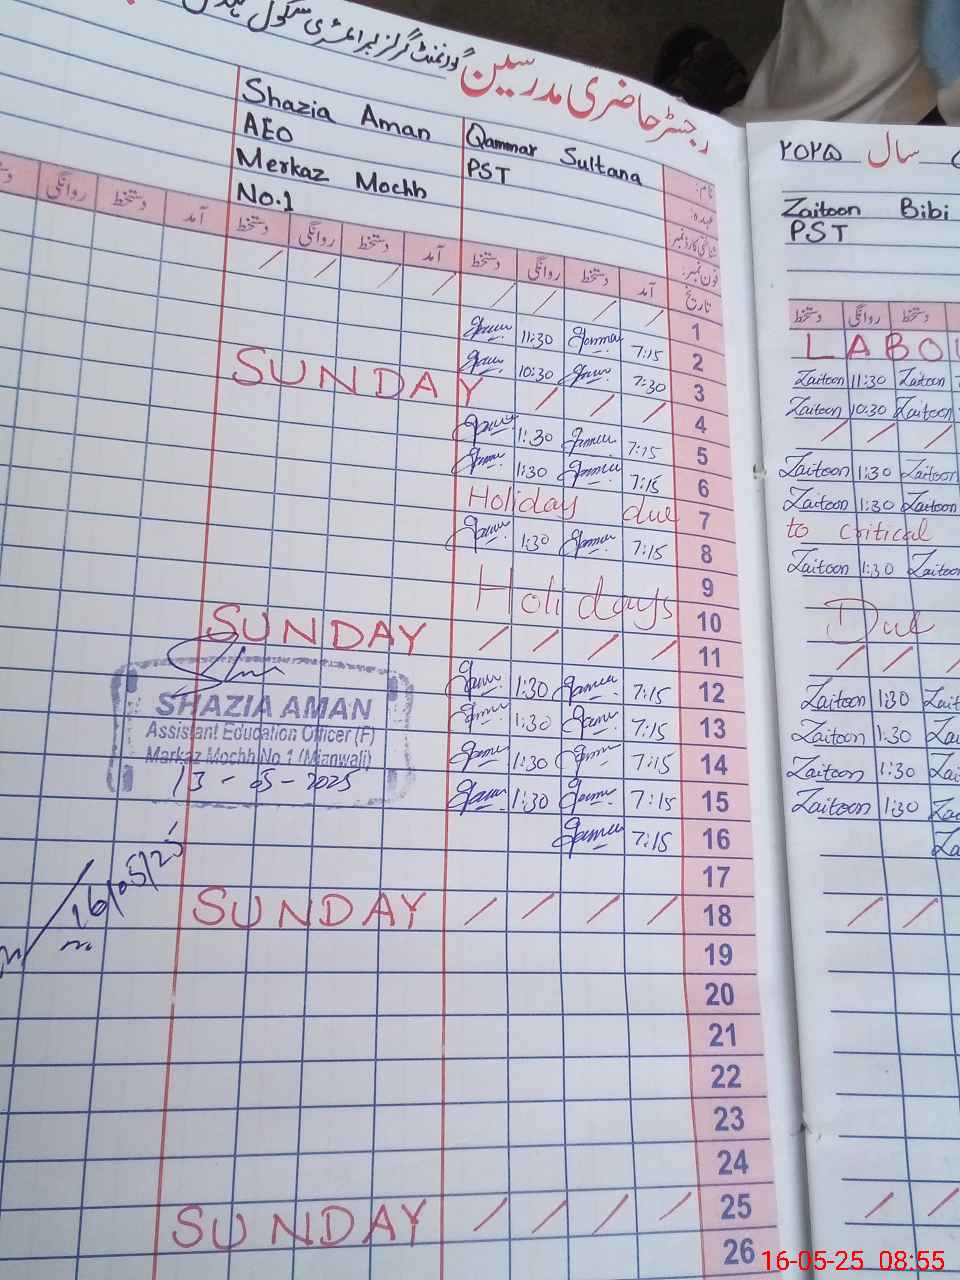 گورنمنٹ گرلز ایلیمنٹری سکول
رجسٹر حاضری مدرسین
Shazia Aman
AEO
Merkaz Mochh
No.1
Qammar Sultana
PST
نام:
عہدہ:
شناختی کارڈ نمبر
فون نمبر:
روانگی دستخط آمد دستخط روانگی دستخط آمد دستخط روانگی دستخط آمد تاریخ
1
11:30 7:15 2
10:30 7:30 3
SUNDAY 4
1:30 7:15 5
1:30 7:15 6
Holiday due 7
1:30 7:15 8
9
Holidays 10
SUNDAY 11
1:30 7:15 12
1:30 7:15 13
1:30 7:15 14
1:30 7:15 15
7:15 16
17
SUNDAY 18
19
20
21
22
23
24
SUNDAY 25
26
SHAZIA AMAN
Assistant Education Officer (F)
Markaz Mochh No 1 (Mianwali)
13-05-2025
16/05/25
سال ۲۰۲۵
Zaitoon Bibi
PST
دستخط روانگی دستخط
LABO
Zaitoon 11:30 Zaitoon
Zaitoon 10:30 Zaitoon
Zaitoon 1:30 Zaitoon
Zaitoon 1:30 Zaitoon
to critical
Zaitoon 1:30 Zaitoon
Due
Zaitoon 1:30 Zait
Zaitoon 1:30 Zai
Zaitoon 1:30 Zai
Zaitoon 1:30 Za
Za
16-05-25 08:55